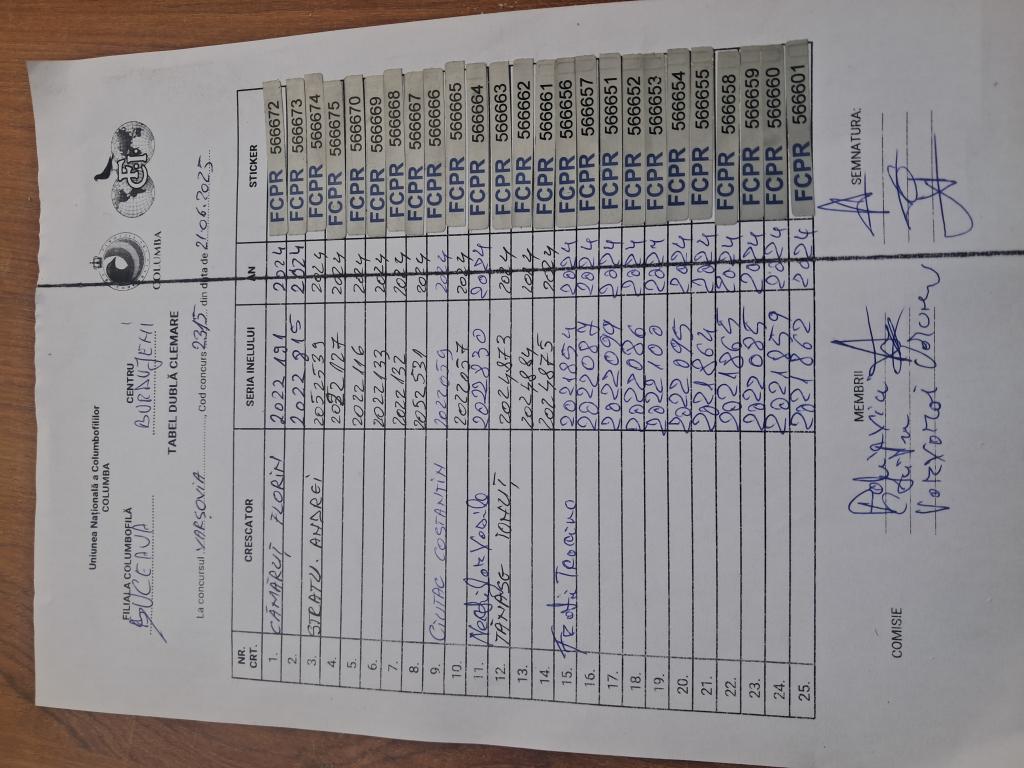 Uniunea Națională a Columbofililor
COLUMBA
COLUMBA
FILIALA COLUMBOFILĂ CENTRU
SUCEAVA BURDUJENI
TABEL DUBLĂ CLEMARE
La concursul VARȘOVIA, Cod concurs 23/5 din data de 21.6.2025
NR. CRT. CRESCATOR SERIA INELULUI AN STICKER
1. CĂMĂRUȚ FLORIN 2022191 2024 FCPR 566672
2. 2022815 2024 FCPR 566673
3. STRATU. ANDREI 2052539 2024 FCPR 566674
4. 2022127 2024 FCPR 566675
5. 2022116 2024 FCPR 566670
6. 2022133 2024 FCPR 566669
7. 2022132 2024 FCPR 566668
8. 2052531 2024 FCPR 566667
9. COSTANTIN 2022059 2024 FCPR 566666
10. 2022057 2024 FCPR 566665
11. Vasile 2022830 2024 FCPR 566664
12. TĂNASE IONUȚ 2024873 2024 FCPR 566663
13. 2024884 2024 FCPR 566662
14. 2024875 2024 FCPR 566661
15. 2021854 2024 FCPR 566656
16. 2022087 2024 FCPR 566657
17. 2022099 2024 FCPR 566651
18. 2022086 2024 FCPR 566652
19. 2022100 2024 FCPR 566653
20. 2022095 2024 FCPR 566654
21. 2021864 2024 FCPR 566655
22. 2021865 2024 FCPR 566658
23. 2022085 2024 FCPR 566659
24. 2021859 2024 FCPR 566660
25. 2021862 2024 FCPR 566601
COMISIE MEMBRII SEMNATURA: